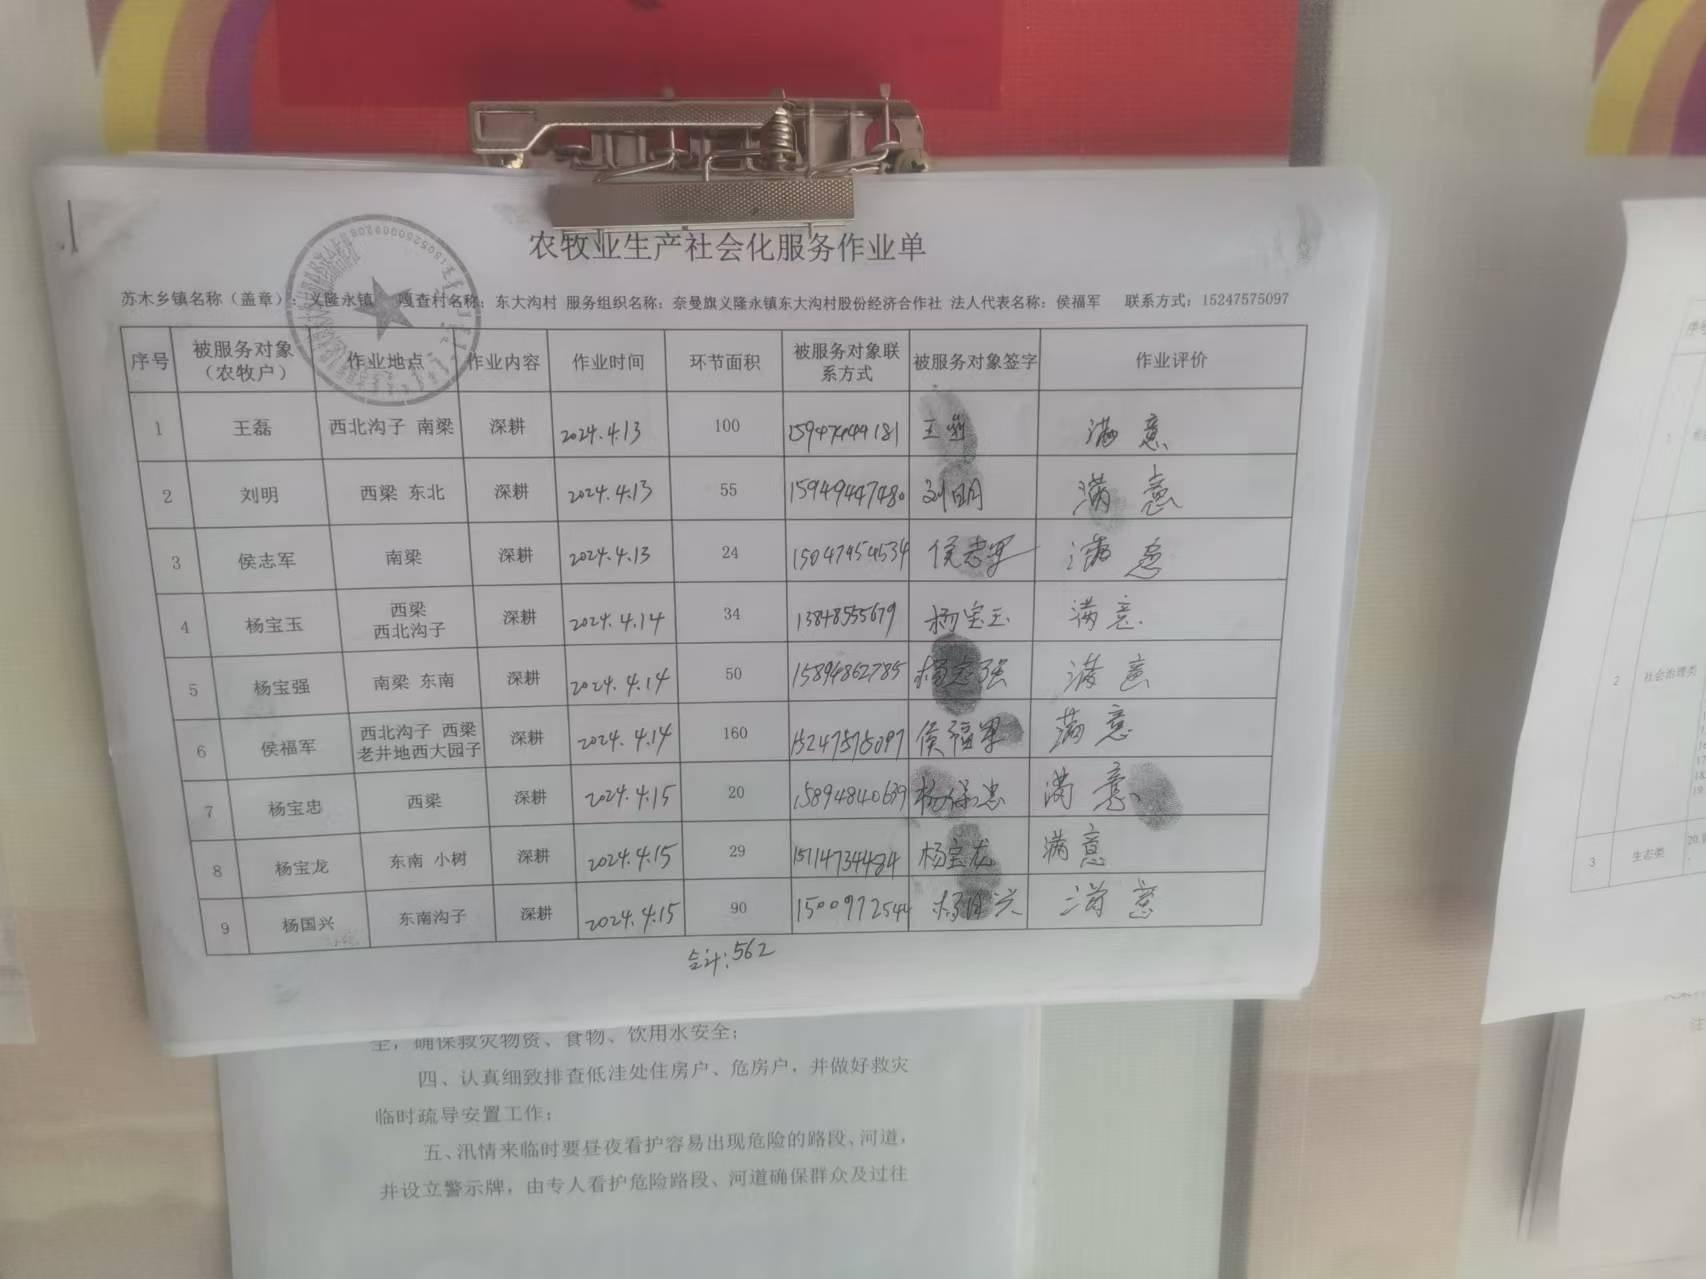 农牧业生产社会化服务作业单
苏木乡镇名称（盖章）：义隆永镇 嘎查村名称：东大沟村 服务组织名称：奈曼旗义隆永镇东大沟村股份经济合作社 法人代表名称：侯福军 联系方式：15247575097
序号 被服务对象（农牧户） 作业地点 作业内容 作业时间 环节面积 被服务对象联系方式 被服务对象签字 作业评价
1 王磊 西北沟子 南梁 深耕 2024.4.13 100 王磊 满意
2 刘明 西梁 东北 深耕 2024.4.13 55 15949447480 刘明 满意
3 侯志军 南梁 深耕 2024.4.13 24 15047454534 侯志军 满意
4 杨宝玉 西梁 西北沟子 深耕 2024.4.14 34 13848555679 杨宝玉 满意
5 杨宝强 南梁 东南 深耕 2024.4.14 50 15894862785 满意
6 侯福军 西北沟子 西梁 老井地西大园子 深耕 2024.4.14 160 15247575097 侯福军 满意
7 杨宝忠 西梁 深耕 2024.4.15 20 15894840639 杨保忠 满意
8 杨宝龙 东南 小树 深耕 2024.4.15 29 15114734484 杨宝龙 满意
9 杨国兴 东南沟子 深耕 2024.4.15 90 1500972544 杨国兴 满意
合计：562
全，确保救灾物资、食物、饮用水安全；
四、认真细致排查低洼处住房户、危房户，并做好救灾
临时疏导安置工作；
五、汛情来临时要昼夜看护容易出现危险的路段、河道，
并设立警示牌，由专人看护危险路段、河道确保群众及过往
2 社会治理类
3 生态类